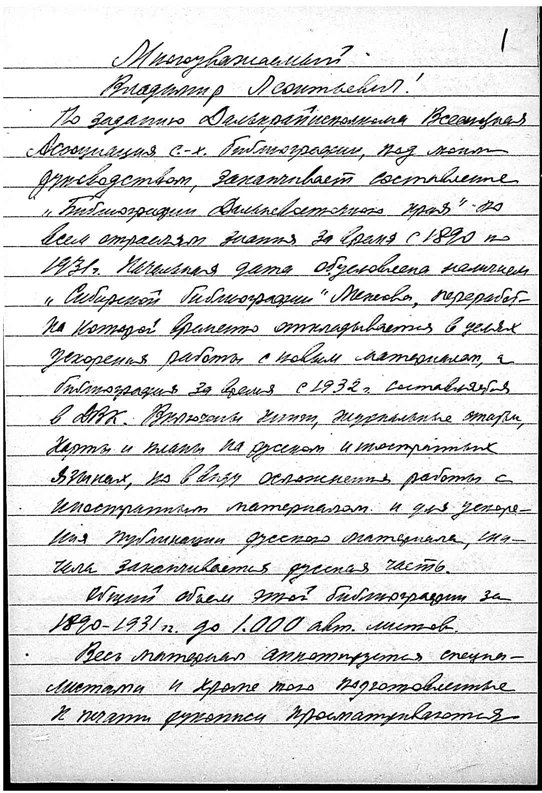 1
Многоуважаемый
Владимир Леонтьевич!
По заданию Далькрайисполкома Всесоюзная
Ассоциация с.-х. библиографии, под моим
руководством, заканчивает составление
"Библиографии Дальневосточного края" по
всем отраслям знания за время с 1890 по
1931 г. Начальная дата обусловлена наличием
"Сибирской библиографии" Межова, переработ-
ка которой временно откладывается в целях
ускорения работы с новым материалом, а
библиография за время с 1932 г. составляется
в ДВК. Включены книги, журнальные статьи,
карты и планы на русском и иностранных
языках, но ввиду осложнения работы с
иностранным материалом и для ускоре-
ния публикации русского материала, сна-
чала заканчивается русская часть.
Общий объем этой библиографии за
1890-1931 г.г. до 1.000 авт. листов.
Весь материал аннотируется специа-
листами и кроме того подготовленные
к печати рукописи просматриваются